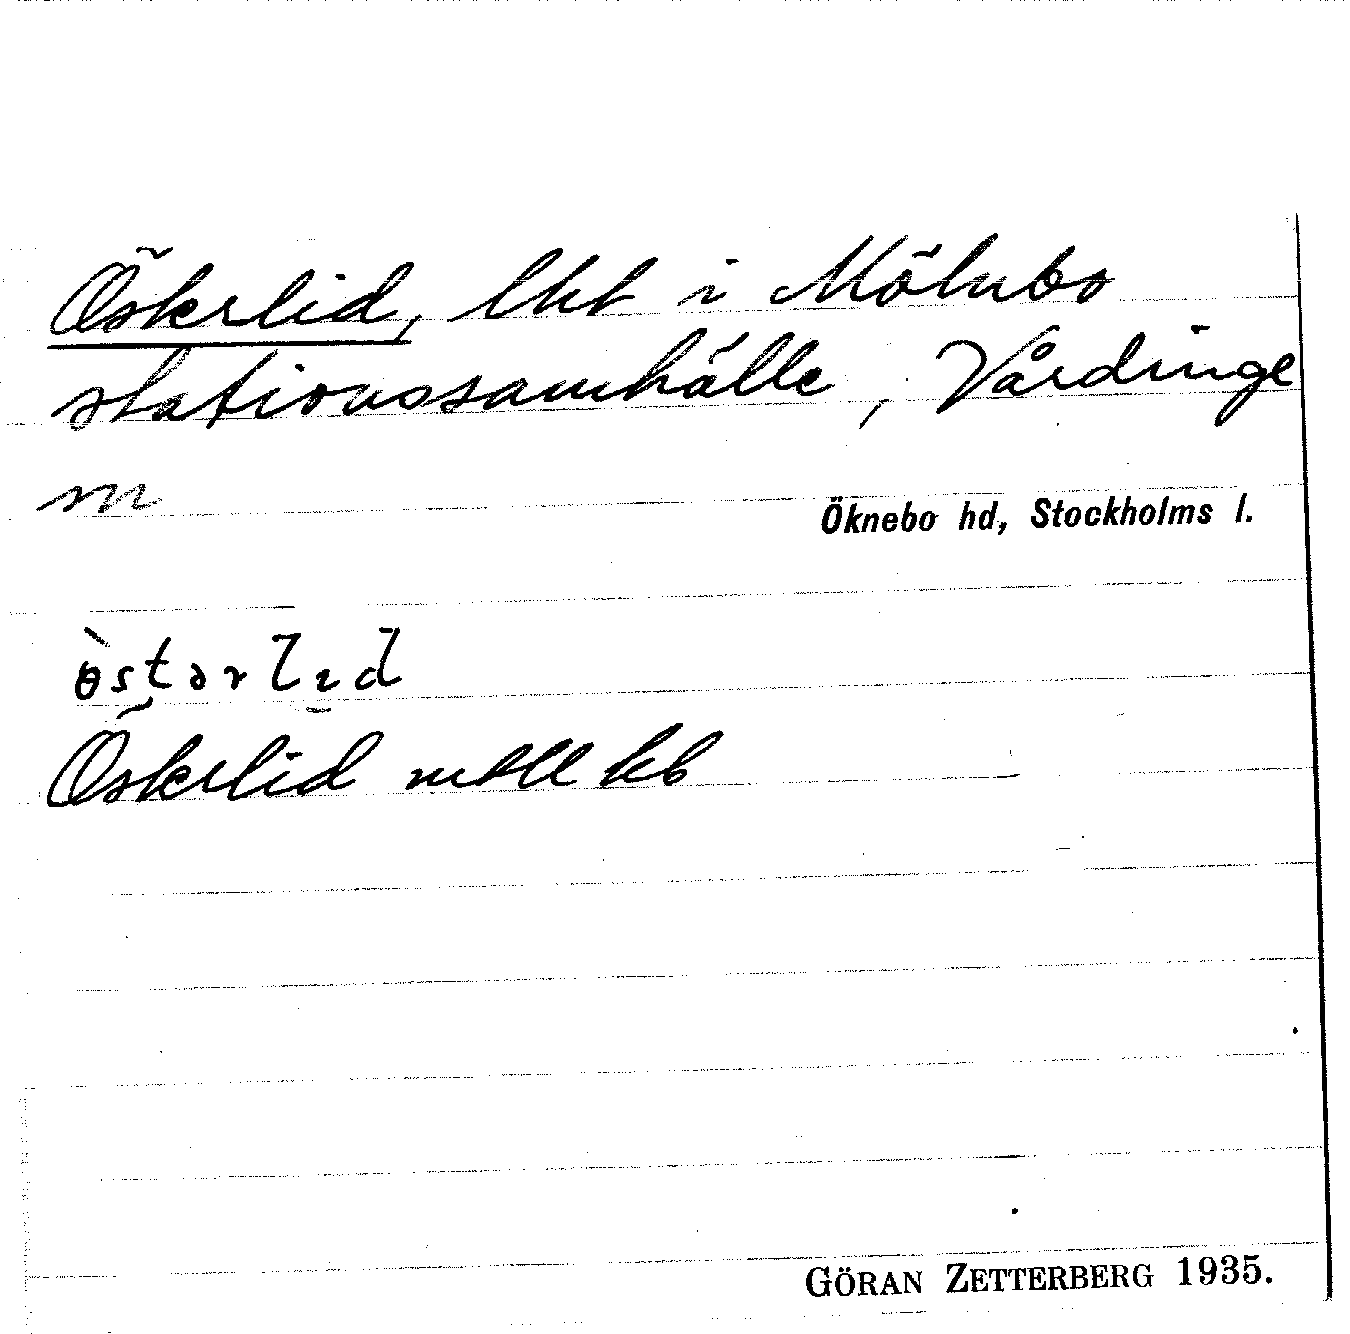 Österlid, lht i Mölnbo
stationssamhälle, Vårdinge
sn
Öknebo hd, Stockholms l.
ɵ̀stərlɪd
Österlid mtll kb
GÖRAN ZETTERBERG 1935.